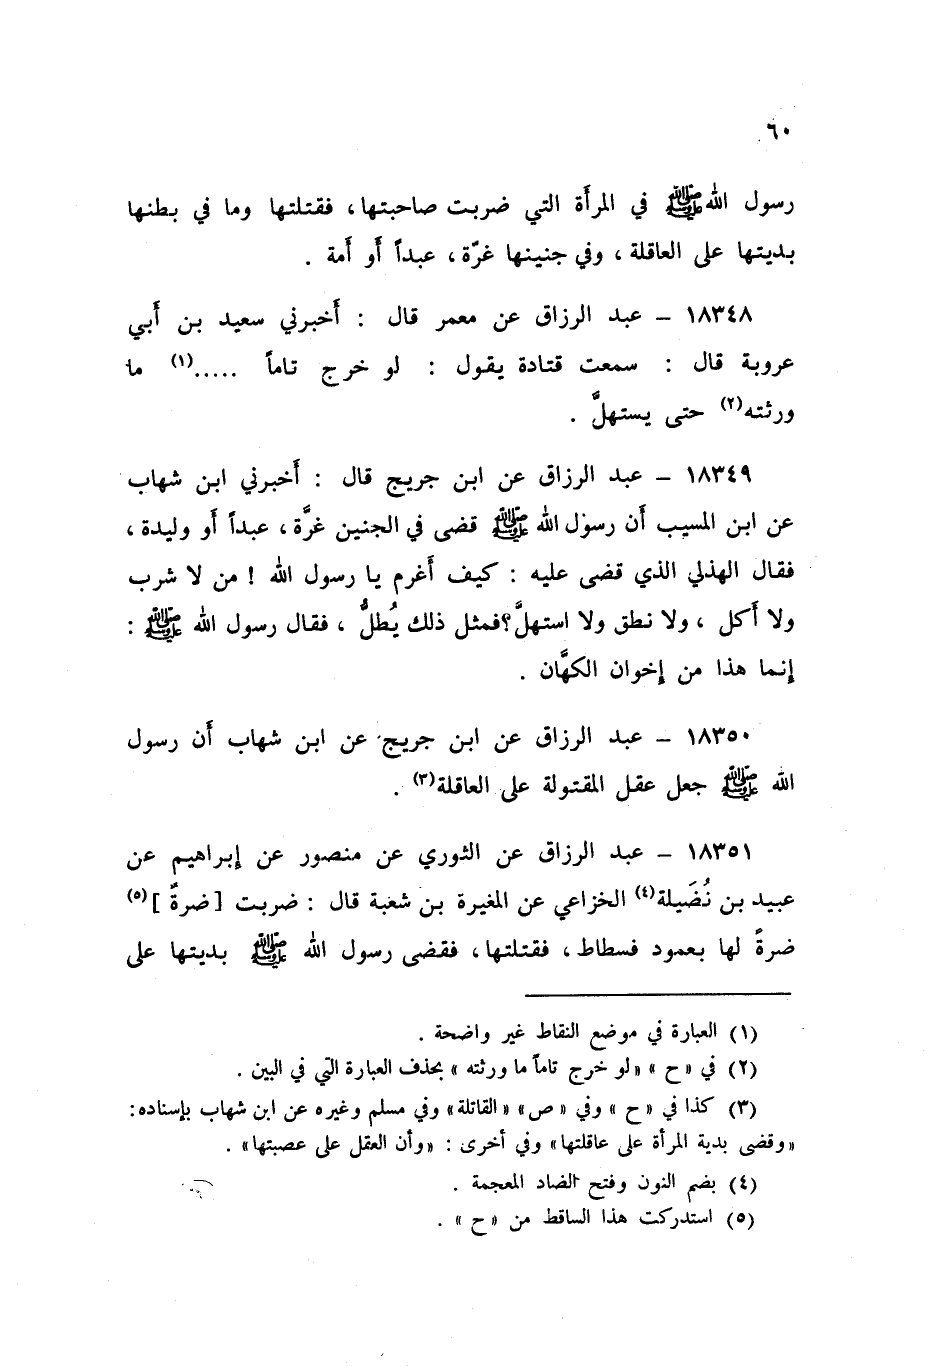 ٦٠
رسول الله ﷺ في المرأة التي ضربت صاحبتها، فقتلتها وما في بطنها
بديتها على العاقلة ، وفي جنينها غرّة، عبداً أو أمة .
١٨٣٤٨ – عبد الرزاق عن معمر قال : أخبرني سعيد بن أبي
عروبة قال : سمعت قتادة يقول : لو خرج تاماً .....(١) ما
ورثته(٢) حتى يستهلَّ .
١٨٣٤٩ – عبد الرزاق عن ابن جريج قال : أخبرني ابن شهاب
عن ابن المسيب أن رسول الله ﷺ قضى في الجنين غرَّة، عبداً أو وليدة ،
فقال الهذلي الذي قضى عليه : كيف أغرم يا رسول الله ! من لا شرب
ولا أكل ، ولا نطق ولا استهلَّ؟فمثل ذلك يُطلُّ ، فقال رسول الله ﷺ :
إنما هذا من إخوان الكهَّان .
١٨٣٥٠ – عبد الرزاق عن ابن جريج عن ابن شهاب أن رسول
الله ﷺ جعل عقل المقتولة على العاقلة(٣) .
١٨٣٥١ – عبد الرزاق عن الثوري عن منصور عن إبراهيم عن
عبيد بن نُضَيلة(٤) الخزاعي عن المغيرة بن شعبة قال : ضربت [ضرةٌ](٥)
ضرةً لها بعمود فسطاط، فقتلتها، فقضى رسول الله ﷺ بديتها على
(١) العبارة في موضع النقاط غير واضحة .
(٢) في «ح» «لو خرج تاماً ما ورثته» بحذف العبارة التي في البين .
(٣) كذا في «ح» وفي «ص» «القاتلة» وفي مسلم وغيره عن ابن شهاب بإسناده:
«وقضى بدية المرأة على عاقلتها» وفي أخرى : «وأن العقل على عصبتها» .
(٤) بضم النون وفتح الضاد المعجمة .
(٥) استدركت هذا الساقط من «ح» .